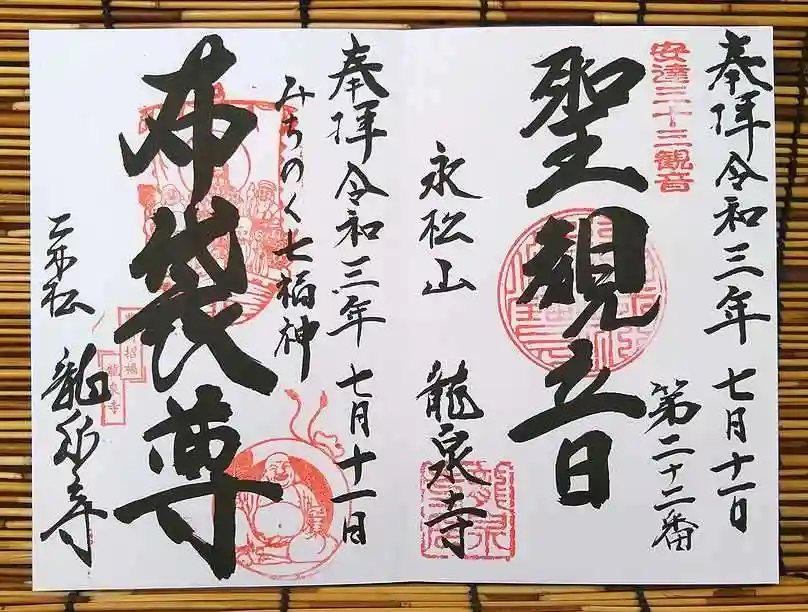 奉拝 令和三年 七月十一日
安達三十三観音
第二十二番
聖観立日
永松山 龍泉寺
奉拝 令和三年 七月十一日
みちのく七福神
布袋尊
招福
龍泉寺
二本松 龍泉寺